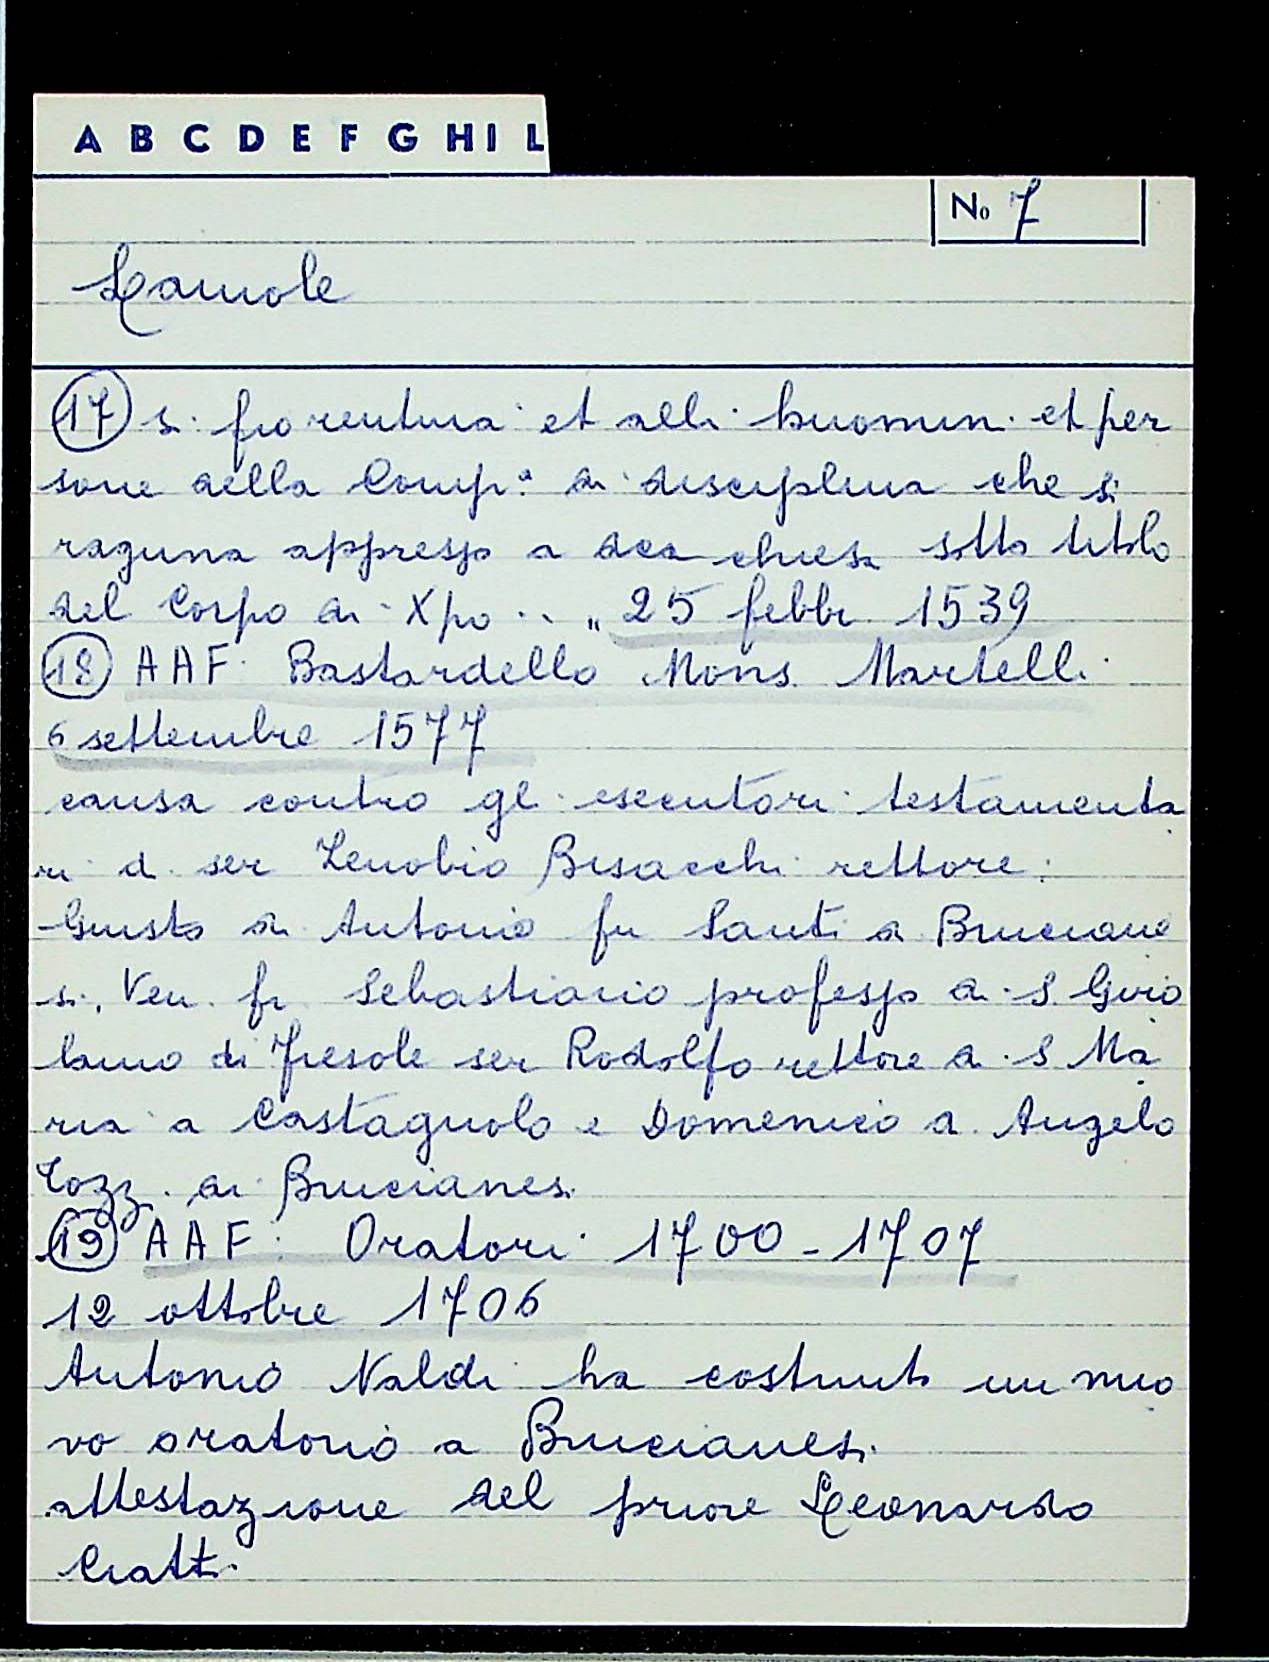 A B C D E F G H I L
No 7
Lamole
17 s. fiorentina et alli huomini et per
sone della Comp.a di disciplina che si
raguna appresso a dca chiesa sotto titolo
del Corpo di Xpo .. " 25 febbr. 1539
18 AAF. Bastardello Mons. Martelli
6 settembre 1577
causa contro gli esecutori testamenta
ri di ser Zenobio Bisacchi rettore:
Giusto di Antonio fu Santi a Brucciane
si, Ven. fr. Sebastiano professo di S. Giro
lamo di Fiesole ser Rodolfo rettore di S Ma
ria a Castagnolo e Domenico di Angelo
Tozzi di Brucianesi
19 AAF. Oratori 1700-1707
12 ottobre 1706
Antonio Naldi ha costruito un nuo
vo oratorio a Brucianesi.
attestazione del priore Leonardo
Ciatti.